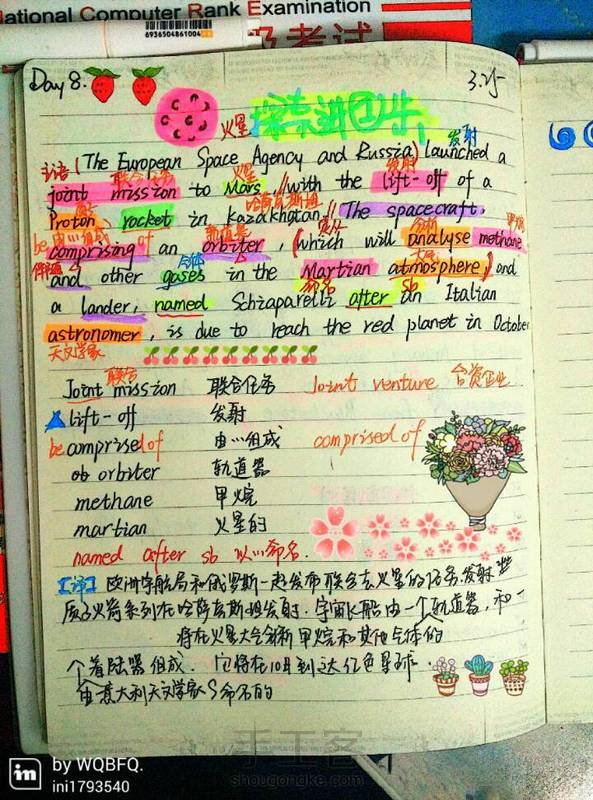 National Computer Rank Examination
6936504861004
级考试
Day 8.
3.25
火星探索进行中
发射
主语 (The European Space Agency and Russia) launched a
联合任务 火星 发射
joint mission to Mars, // with the lift-off of a
哈萨克斯坦
Proton rocket in Kazakhstan. // The spacecraft,
be 由…组成 轨道器 定从 分析 甲烷
comprising of an orbiter, (which will analyse methane
气体 大气
and other gases in the Martian atmosphere,) and
命名 sb
a lander, named Schiaparelli after an Italian
astronomer, is due to reach the red planet in October
天文学家
联合
Joint mission 联合任务 Joint venture 合资企业
lift-off 发射
be comprised of 由…组成 comprised of
orbiter 轨道器
methane 甲烷
martian 火星的
named after sb 以…命名.
【译】 欧洲宇航局和俄罗斯一起发布联合去火星的任务.发射
质子火箭系列在哈萨克斯坦发射. 宇宙飞船由一个轨道器, 和一
将在火星大气分析甲烷和其他气体的
个着陆器组成. 它将在10月到达红色星球.
由意大利天文学家S命名的
手工客
shougongke.com
in by WQBFQ.
ini1793540